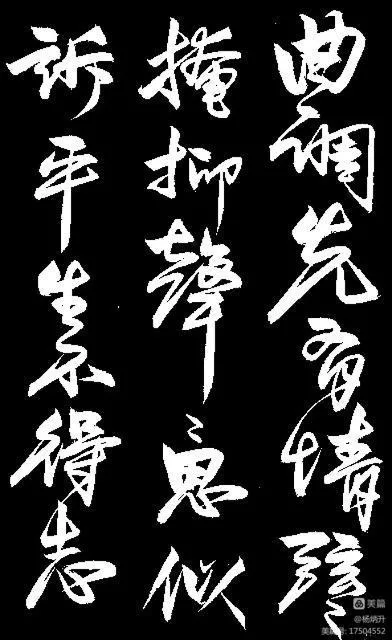 曲調先有情弦〻
掩抑聲〻思似
訴平生不得志
美篇
@杨炳升
美篇号: 17504552